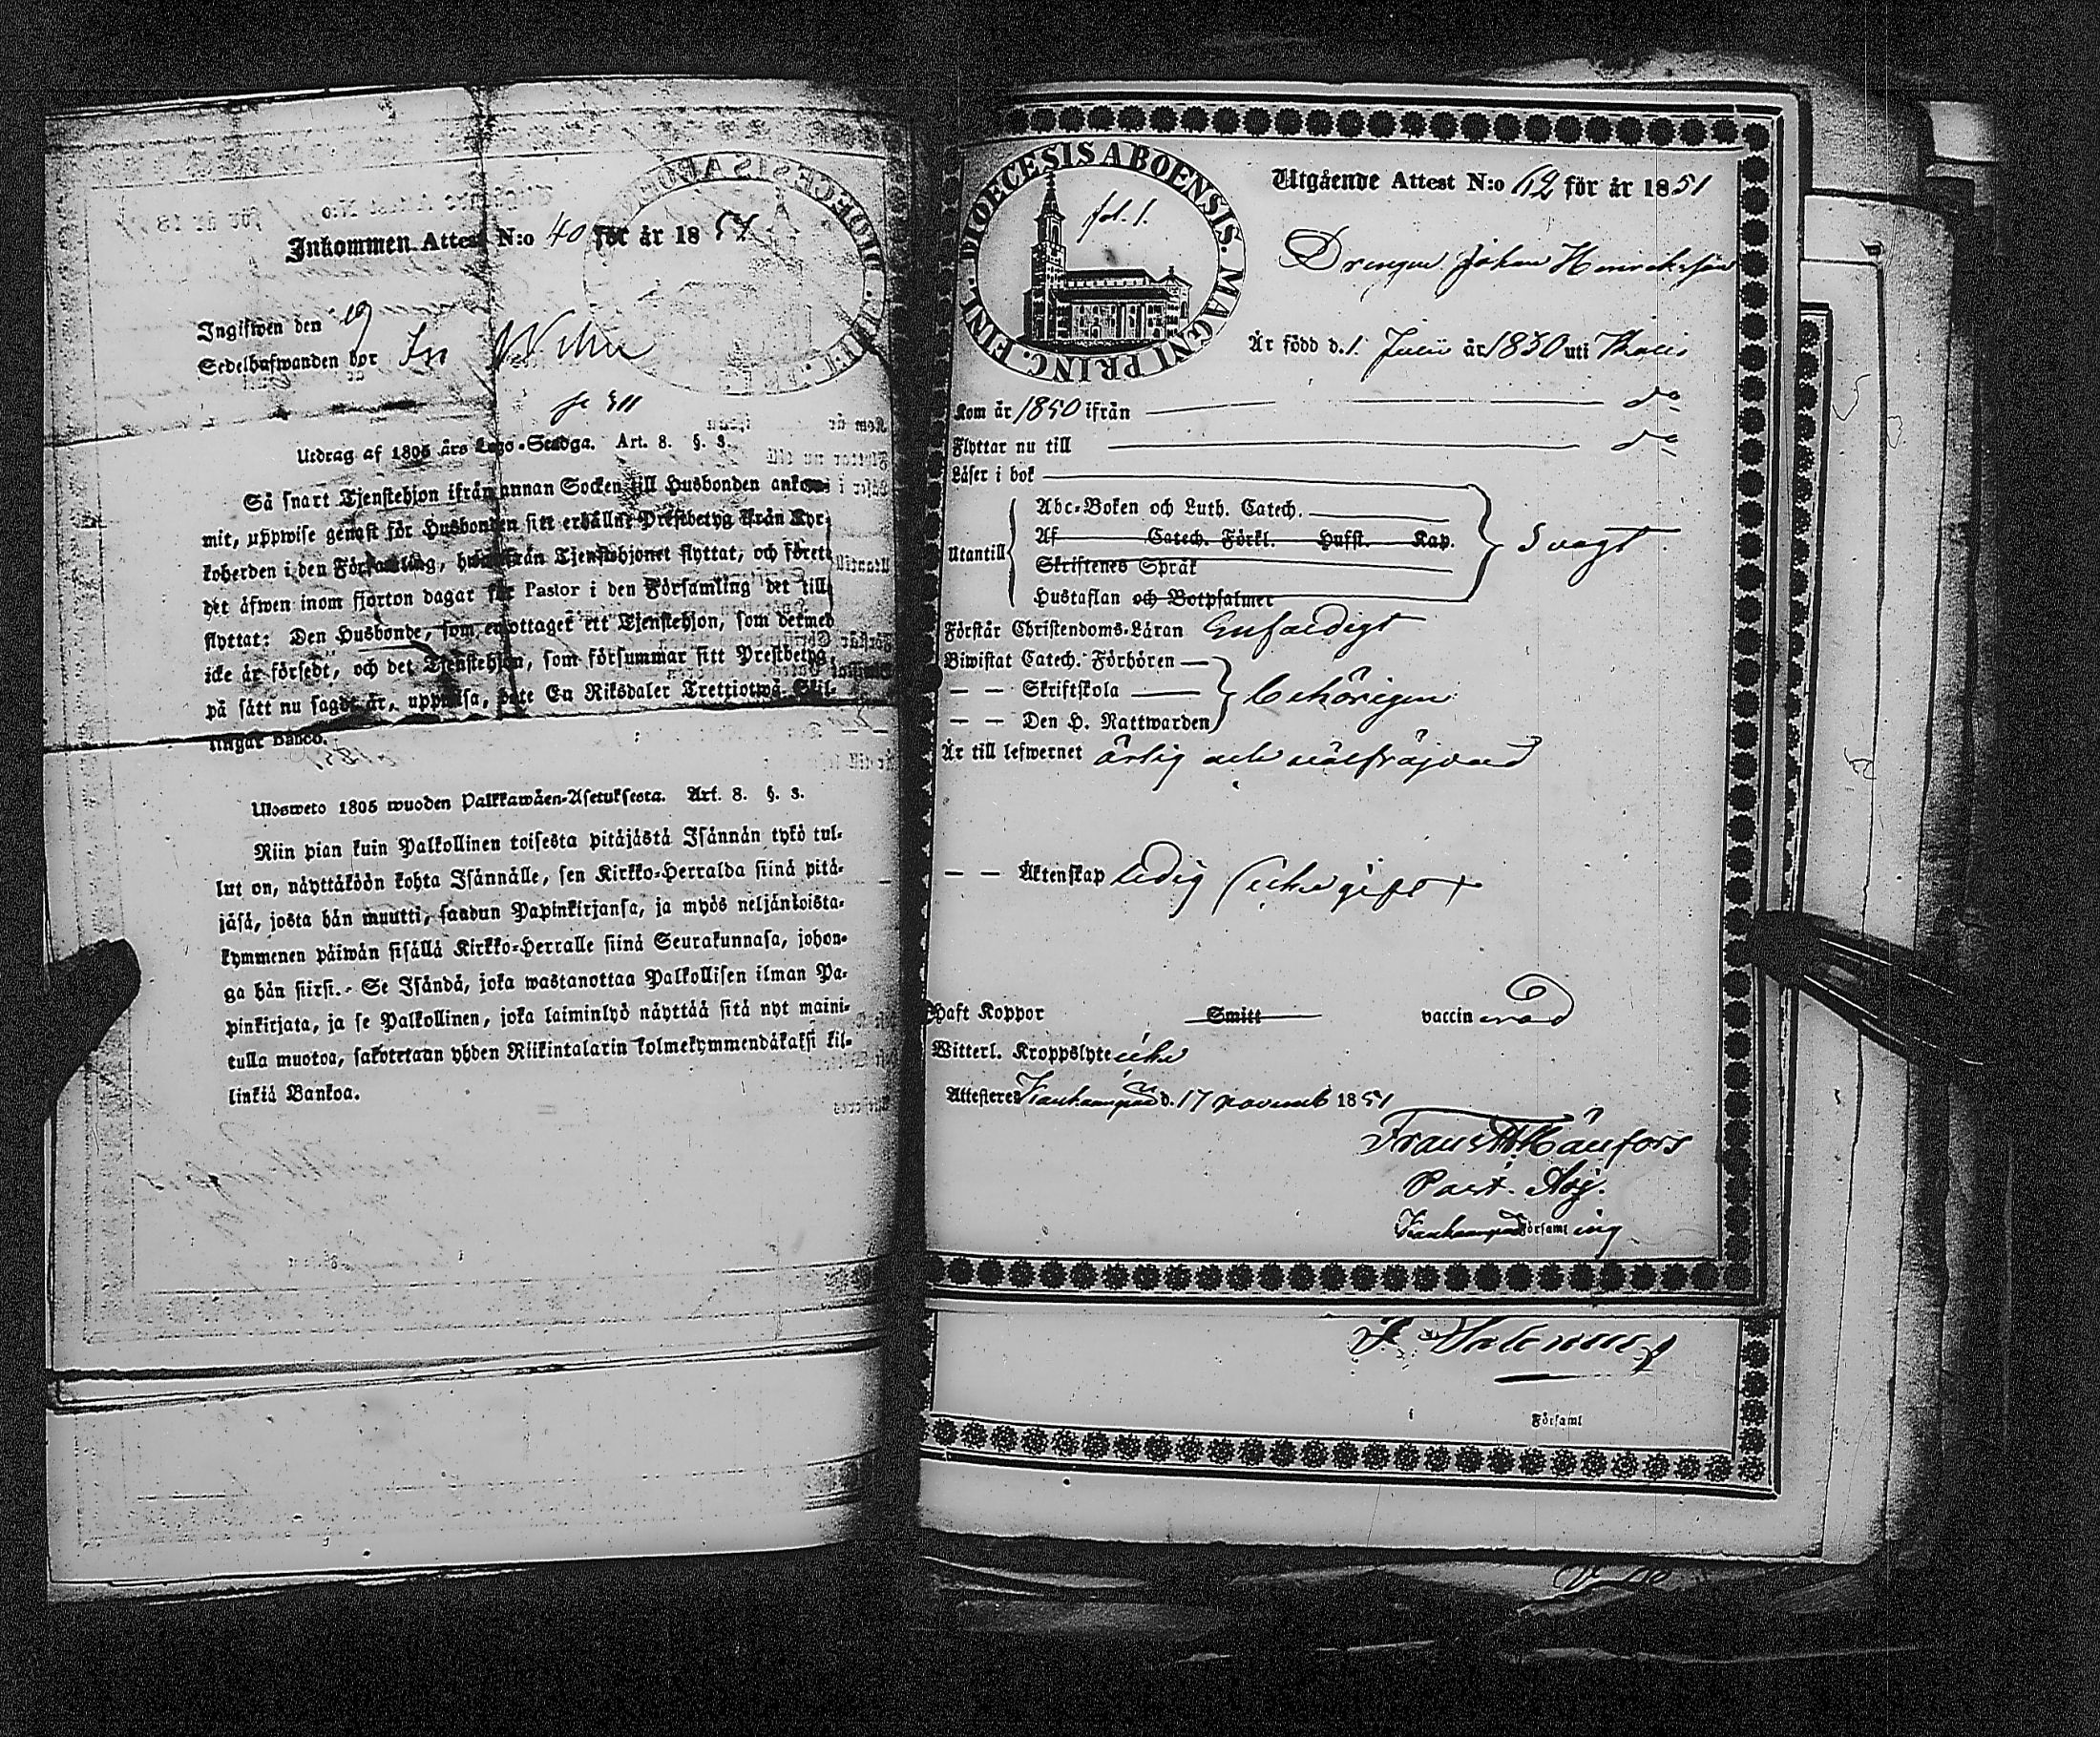 Inkommen Attest N:o 40 för år 18
Ingifwen den 19
Sedelhafwanden bor
Utdrag af 1805 års Lego-Stadga. Art. 8. §. 3.
Så snart Tjenstehjon ifrån annan Socken till Husbonden ankom-
mit, uppwise genast för Husbonden sitt erhållne Prestbetyg från Kyr-
koherden i den Församling, hwarifrån Tjenstehjonet flyttat, och förete
det äfwen inom fjorton dagar för Pastor i den Församling det till-
flyttat: Den Husbonde, som emottager ett Tjenstehjon, som dermed
icke är försedt, och det Tjenstehjon, som försummar sitt Prestbetyg,
på sätt nu sagdt är, uppwisa, böte En Riksdaler Trettiotwå Skil-
lingar Banco.
Ulosweto 1805 wuoden Palkkawäen-Asetuksesta. Art. 8. §. 3.
Niin pian kuin Palkollinen toisesta pitäjästä Isännän tykö tul-
lut on, näyttäköön kohta Isännälle, sen Kirkko-Herralda siinä pitä-
jäsä, josta hän muutti, saadun Papinkirjansa, ja myös neljäntoista-
kymmenen päiwän sisällä Kirkko-Herralle siinä Seurakunnasa, johon-
ga hän siirsi. - Se Isändä, joka wastanottaa Palkollisen ilman Pa-
pinkirjata, ja se Palkollinen, joka laiminlyö näyttää sitä nyt maini-
tulla muotoa, sakotetaan yhden Riikintalarin kolmekymmendäkaksi kil-
linkiä Bankoa.
DIOECESIS ABOENSIS. MAGNI PRINC. FINL.
fol. 1.
Utgående Attest N:o 62 för år 1851
Drengen Johan Henriksson
Är född d. 1 Junii år 1830 uti Thalis
Kom år 1850 ifrån do
Flyttar nu till do
Läser i bok
Utantill
Abc-Boken och Luth. Catech.
Af Catech. Förkl. Hufst. Kap.
Skriftenes Språk
Hustaflan och Botpsalmer
Svagt
Förstår Christendoms-Läran Enfaldigt
Biwistat Catech. Förhören
— — Skriftskola
— — Den H. Nattwarden
behörigen
Är till lefwernet ärlig och wälfräjdad
— — Äktenskap ledig (icke gift)
Haft Koppor Smitt vaccinerad
Witterl. Kroppslyte icke
Attesteres d. 17 novemb 1851
Frans Månfors
Past. Adj.
Församling
Församl